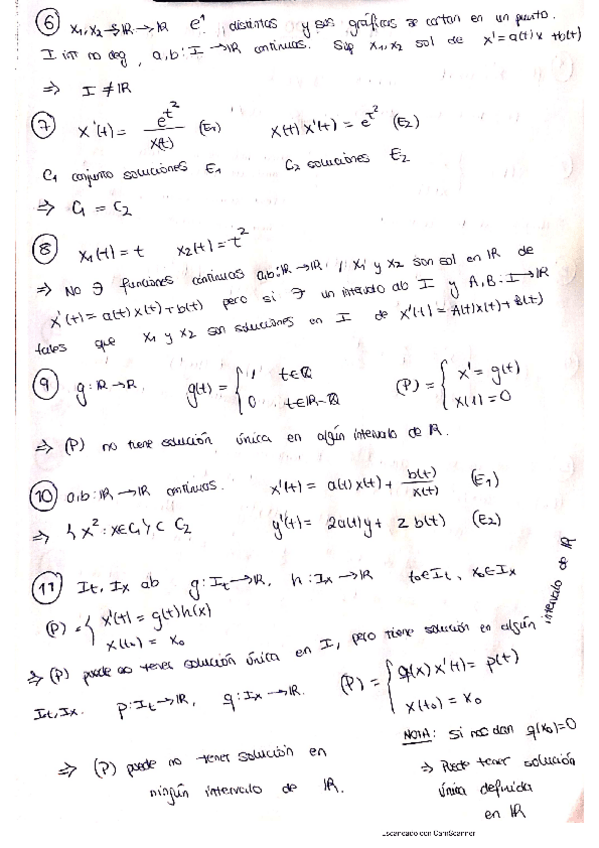 ⑥ x₁, x₂ : ℝ → ℝ e¹ distintas y sus gráficas se cortan en un punto.
I int no deg, a,b: I → ℝ continuas. Sup x₁, x₂ sol de x' = a(t)x + b(t)
⇒ I ≠ ℝ
⑦ x'(t) = e^{t²} / x(t) (E₁) x(t) x'(t) = e^{t²} (E₂)
C₁ conjunto soluciones E₁ C₂ soluciones E₂
⇒ C₁ = C₂
⑧ x₁(t) = t x₂(t) = t²
⇒ No ∃ funciones continuas a,b: ℝ → ℝ / x₁ y x₂ son sol en ℝ de
x'(t) = a(t)x(t) + b(t) pero si ∃ un intervalo ab I y A,B: I → ℝ
tales que x₁ y x₂ son soluciones en I de x'(t) = A(t)x(t) + B(t)
⑨ g: ℝ → ℝ g(t) = { 1, t∈ℚ (P) = { x' = g(t)
0 t∈ℝ-ℚ x(1) = 0
⇒ (P) no tiene solución única en algún intervalo de ℝ.
⑩ a,b: ℝ → ℝ continuas. x'(t) = a(t)x(t) + b(t)/x(t) (E₁)
⇒ {x² : x∈C₁} ⊂ C₂ y'(t) = 2a(t)y + 2b(t) (E₂)
⑪ It, Ix ab g: It → ℝ, h: Ix → ℝ t₀∈It, x₀∈Ix
(P) = { x'(t) = g(t)h(x)
x(t₀) = x₀
⇒ (P) puede no tener solución única en I, pero tiene solución en algún intervalo de ℝ
It, Ix. p: It → ℝ, q: Ix → ℝ. (P) = { q(x) x'(t) = p(t)
x(t₀) = x₀
⇒ (P) puede no tener solución en
ningún intervalo de ℝ.
NOTA: si nos dan q(x₀)=0
⇒ Puede tener solución
única definida
en ℝ
Escaneado con CamScanner